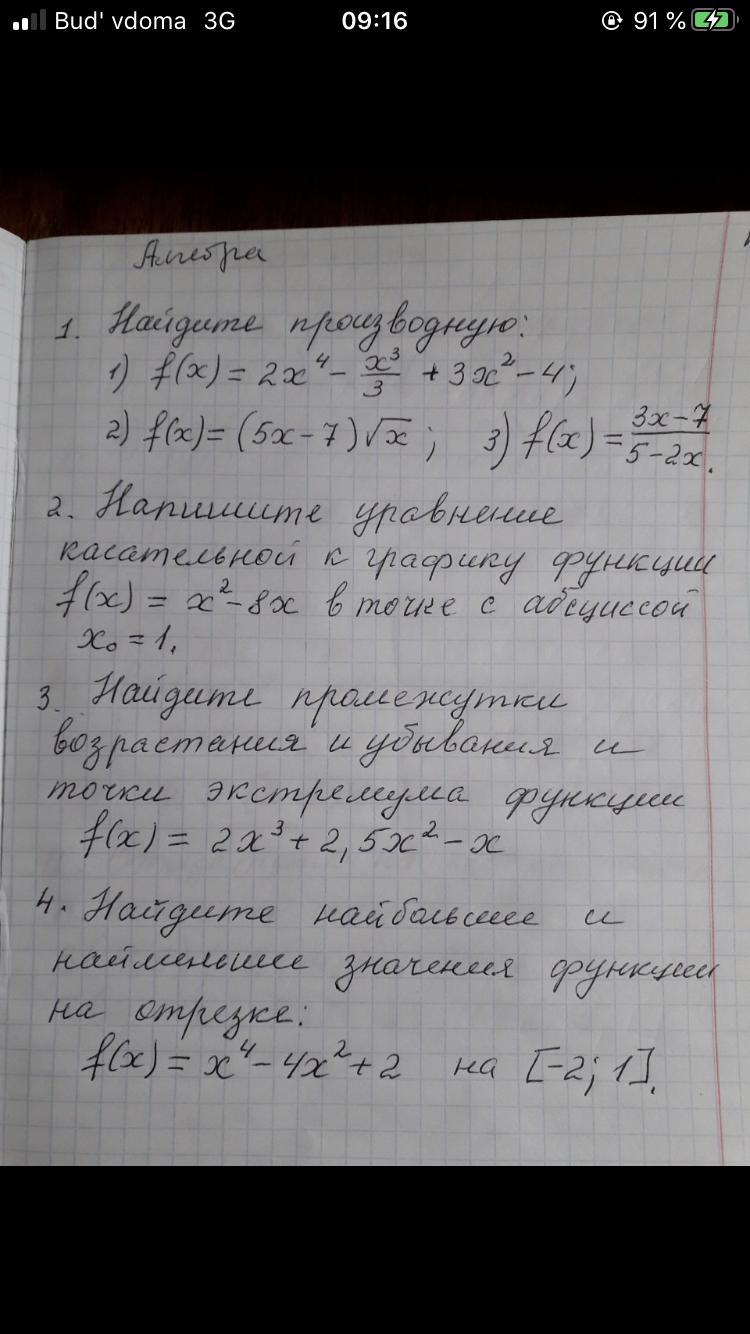 Bud' vdoma 3G 09:16 91 %
Алгебра
1. Найдите производную:
1) f(x) = 2x⁴ - x³/3 + 3x² - 4;
2) f(x) = (5x - 7)√x; 3) f(x) = (3x - 7)/(5 - 2x).
2. Напишите уравнение
касательной к графику функции
f(x) = x² - 8x в точке с абсциссой
x₀ = 1.
3. Найдите промежутки
возрастания и убывания и
точки экстремума функции
f(x) = 2x³ + 2,5x² - x
4. Найдите наибольшее и
найменьшие значения функции
на отрезке:
f(x) = x⁴ - 4x² + 2 на [-2; 1].